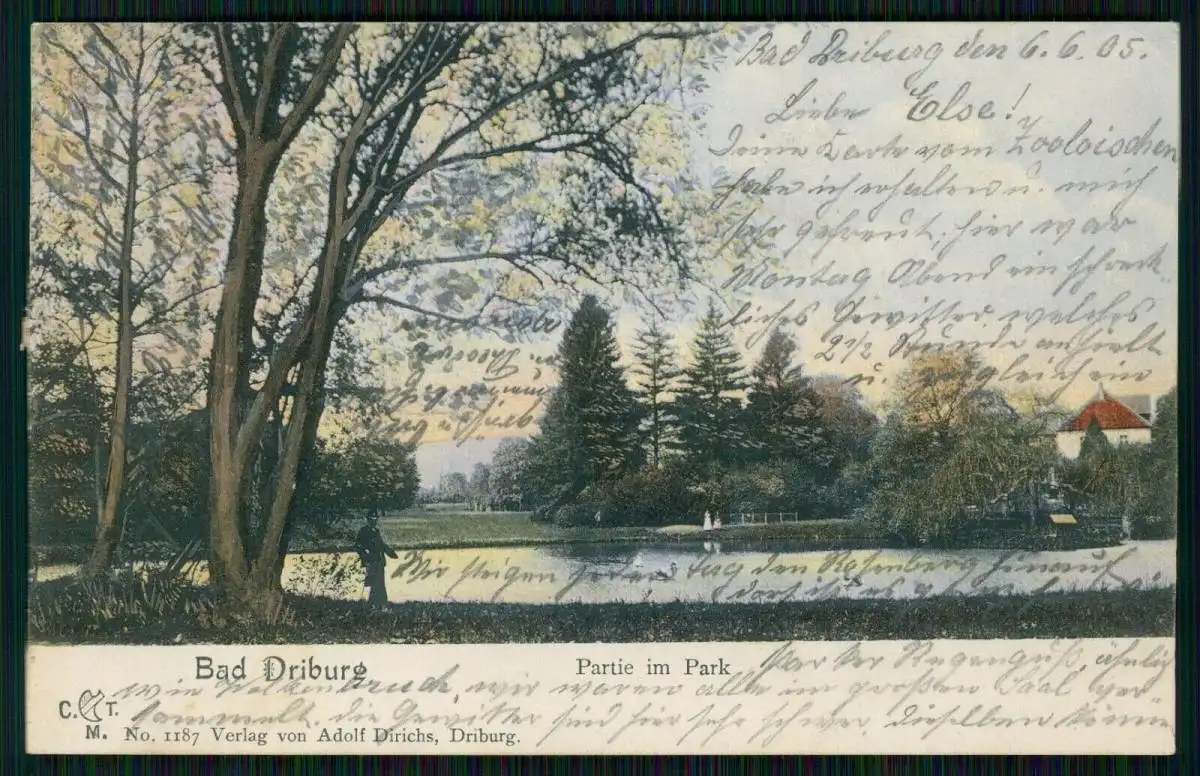 Bad Driburg den 6.6.05.
Liebe Else!
Deine Karte vom Zooloischen
habe ich erhalten u. mich
sehr gefreut, hier war
Montag Abend ein schreck-
liches Gewitter, welches
2½ Stunde anhielt
u. zugleich ein
starker Regenguß, ähnlich
wie Wolkenbruch, wir waren alle im großen Saal ver-
sammelt. die Gewitter sind hier sehr schwer, dieselben können
Wir steigen jeden Tag den Rosenberg hinauf
dort ist es
Bad Driburg
Partie im Park
C. T.
M. No. 1187 Verlag von Adolf Dirichs, Driburg.